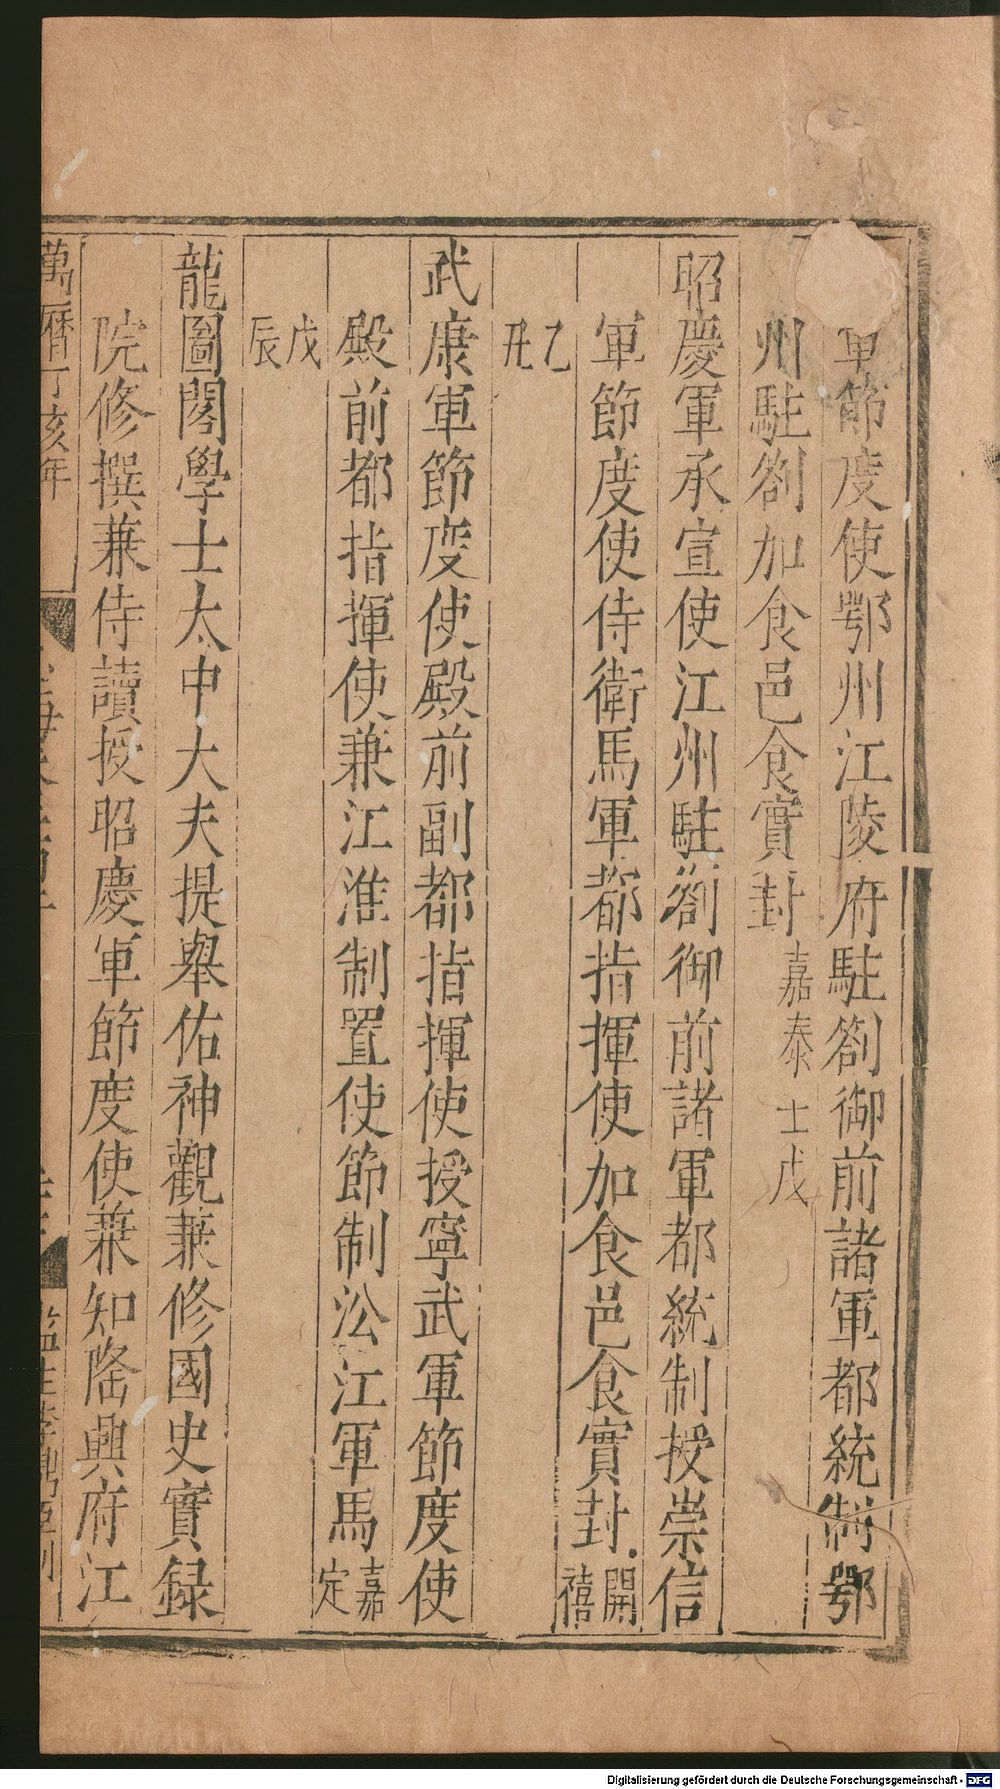 軍節度使鄂州江陵府駐劄御前諸軍都統制鄂
州駐劄加食邑食實封嘉泰士戌
昭慶軍承宣使江州駐劄御前諸軍都統制授崇信
軍節度使侍衛馬軍都指揮使加食邑食實封開禧
乙丑
武康軍節度使殿前副都指揮使授寧武軍節度使
殿前都指揮使兼江淮制置使節制沿江軍馬嘉定
戊辰
龍圖閣學士太中大夫提舉佑神觀兼修國史實録
院修撰兼侍讀授昭慶軍節度使兼知隆興府江
萬曆丁亥年
Digitalisierung gefördert durch die Deutsche Forschungsgemeinschaft - DFG